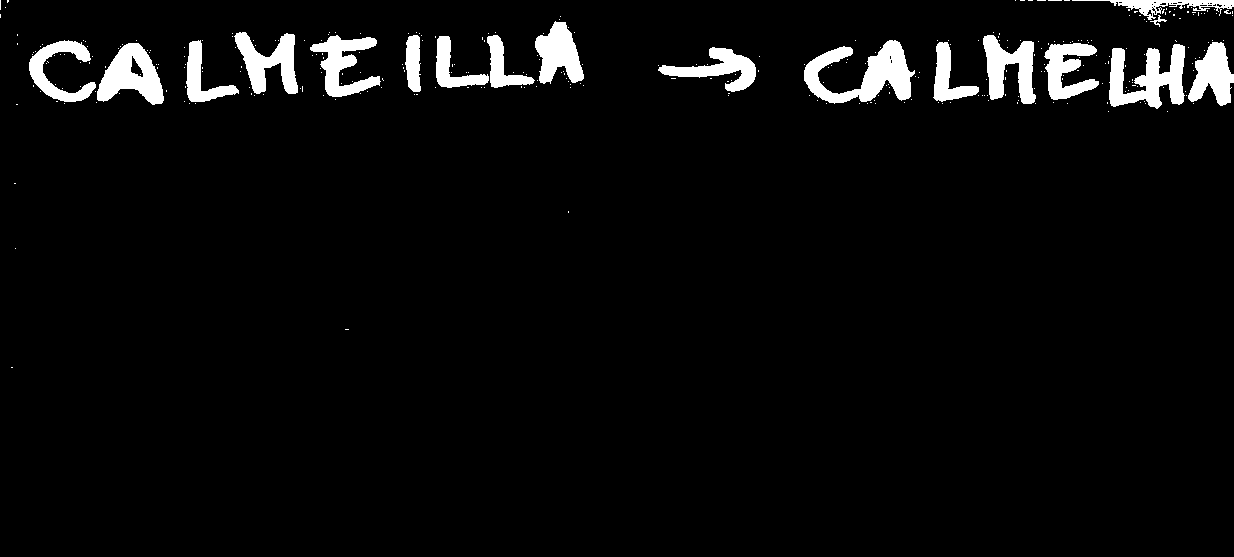 CALMEILLA → CALMELHA